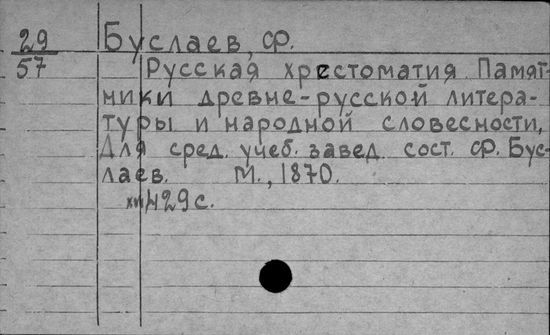 29 Буслаев, Ф.
57 Русская хрестоматия Памят-
ники древне-русской литера-
туры и народной словесности,
Для сред. учеб. завед. сост. Ф. Бус-
лаев. М., 1870.
429 с.